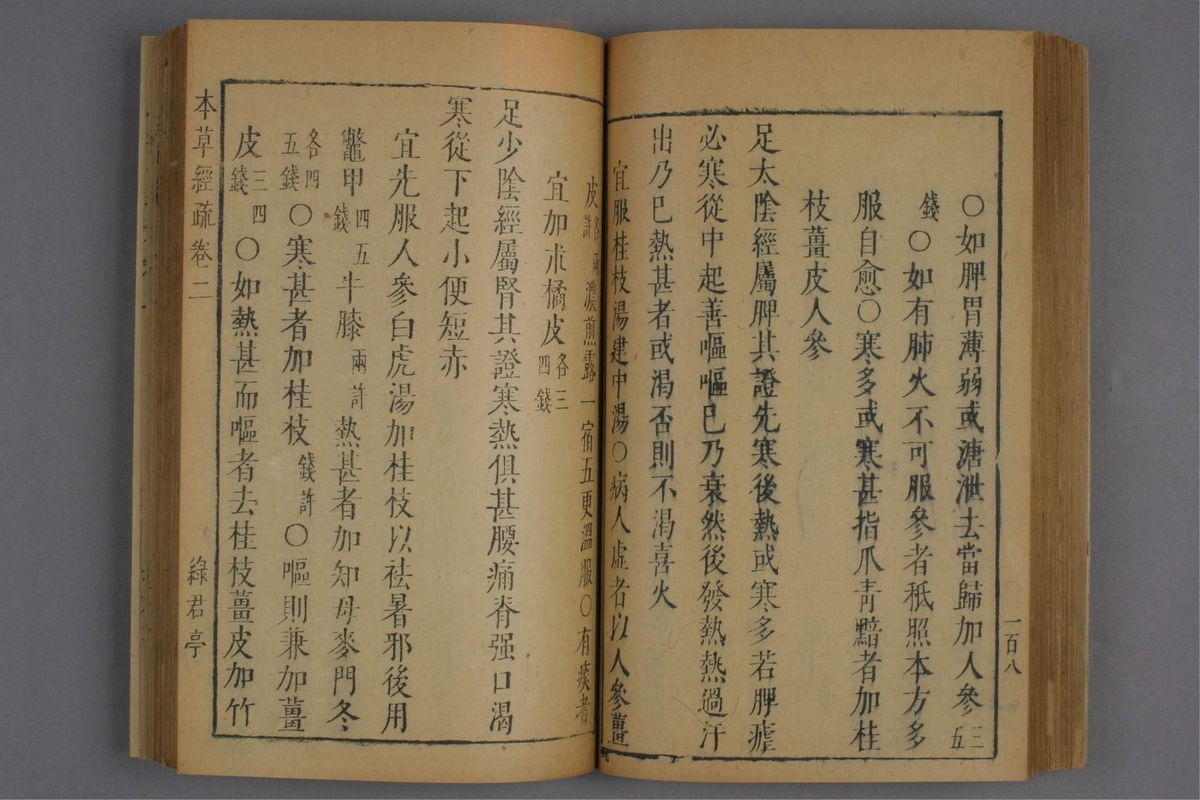 一百八
○如脾胃薄弱或溏泄去當歸加人參三五
錢○如有肺火不可服參者秖照本方多
服自愈○寒多或寒甚指爪青黯者加桂
枝薑皮人參
足太陰經屬脾其證先寒後熱或寒多若脾瘧
必寒從中起善嘔嘔已乃衰然後發熱熱過汗
出乃已熱甚者或渴否則不渴喜火
宜服桂枝湯建中湯○病人虛者以人參薑
皮各兩許濃煎露一宿五更溫服○有痰者
宜加朮橘皮各三四錢
足少陰經屬腎其證寒熱俱甚腰痛脊强口渴
寒從下起小便短赤
宜先服人參白虎湯加桂枝以祛暑邪後用
鼈甲四五錢牛膝兩許熱甚者加知母麥門冬
各四五錢○寒甚者加桂枝錢許○嘔則兼加薑
皮三四錢○如熱甚而嘔者去桂枝薑皮加竹
本草經疏卷二
綠君亭